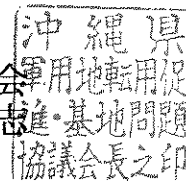 沖縄県
軍用地転用促
進・基地問題
協議会長之印